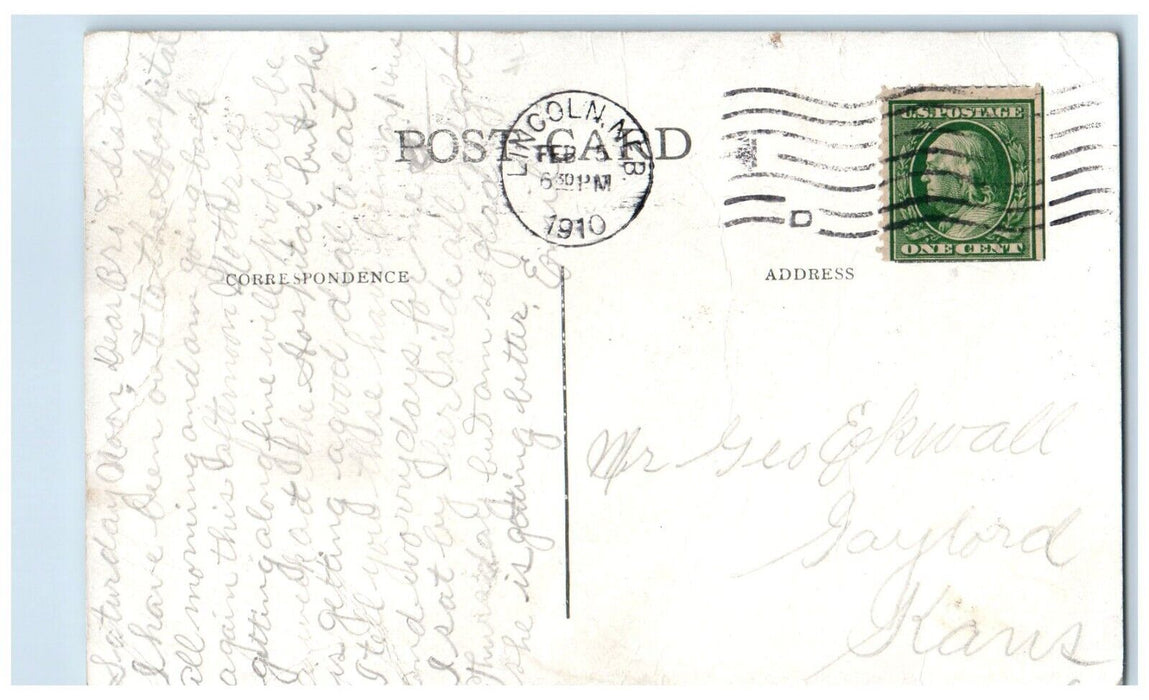 POST CARD
LINCOLN, NEB.
FEB 5
6 30 PM
1910
D
U.S. POSTAGE
ONE CENT
CORRESPONDENCE
ADDRESS
Saturday Noon, Dear Bro & sister
I have been out to the Hospital
all morning and am going back
again this afternoon.
getting along fine will be
week at the Hospital but she
is getting a good deal to eat
I tell you there has
and worry days for me
I sat by her side all
Thursday but am so glad
she is getting better.
Mr Geo Ekwall
Gaylord
Kans